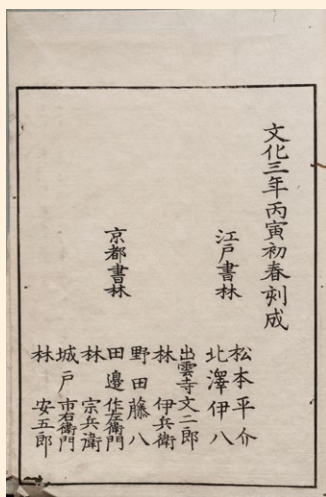 文化三年丙寅初春刻成
江戸書林
松本平介
北澤伊八
京都書林
出雲寺文二郎
林伊兵衛
野田藤八
田邉作左衛門
林宗兵衛
城戸市右衛門
林安五郎